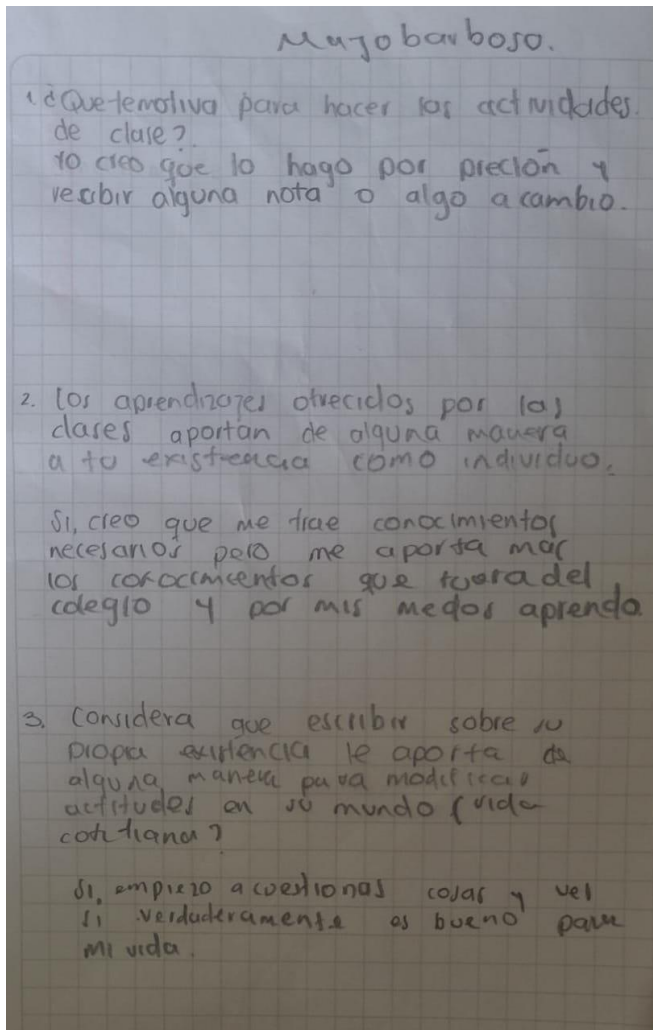 Majobarboso.
1. ¿Que temotiva para hacer las actividades.
de clase?
Yo creo que lo hago por preción y
recibir alguna nota o algo a cambio.
2. los aprendizajes ofrecidos por las
clases aportan de alguna manera
a tu existencia como individuo.
Si, creo que me trae conocimientos
necesarios pero me aporta mas
los conocimientos que fuera del
colegio y por mis medos aprendo
3. Considera que escribir sobre su
propia existencia le aporta de
alguna manera para modificar
actitudes en su mundo (vida
cotidiana?
Si, empiezo a cuestionas cosas y ver
si verdaderamente es bueno para
mi vida.